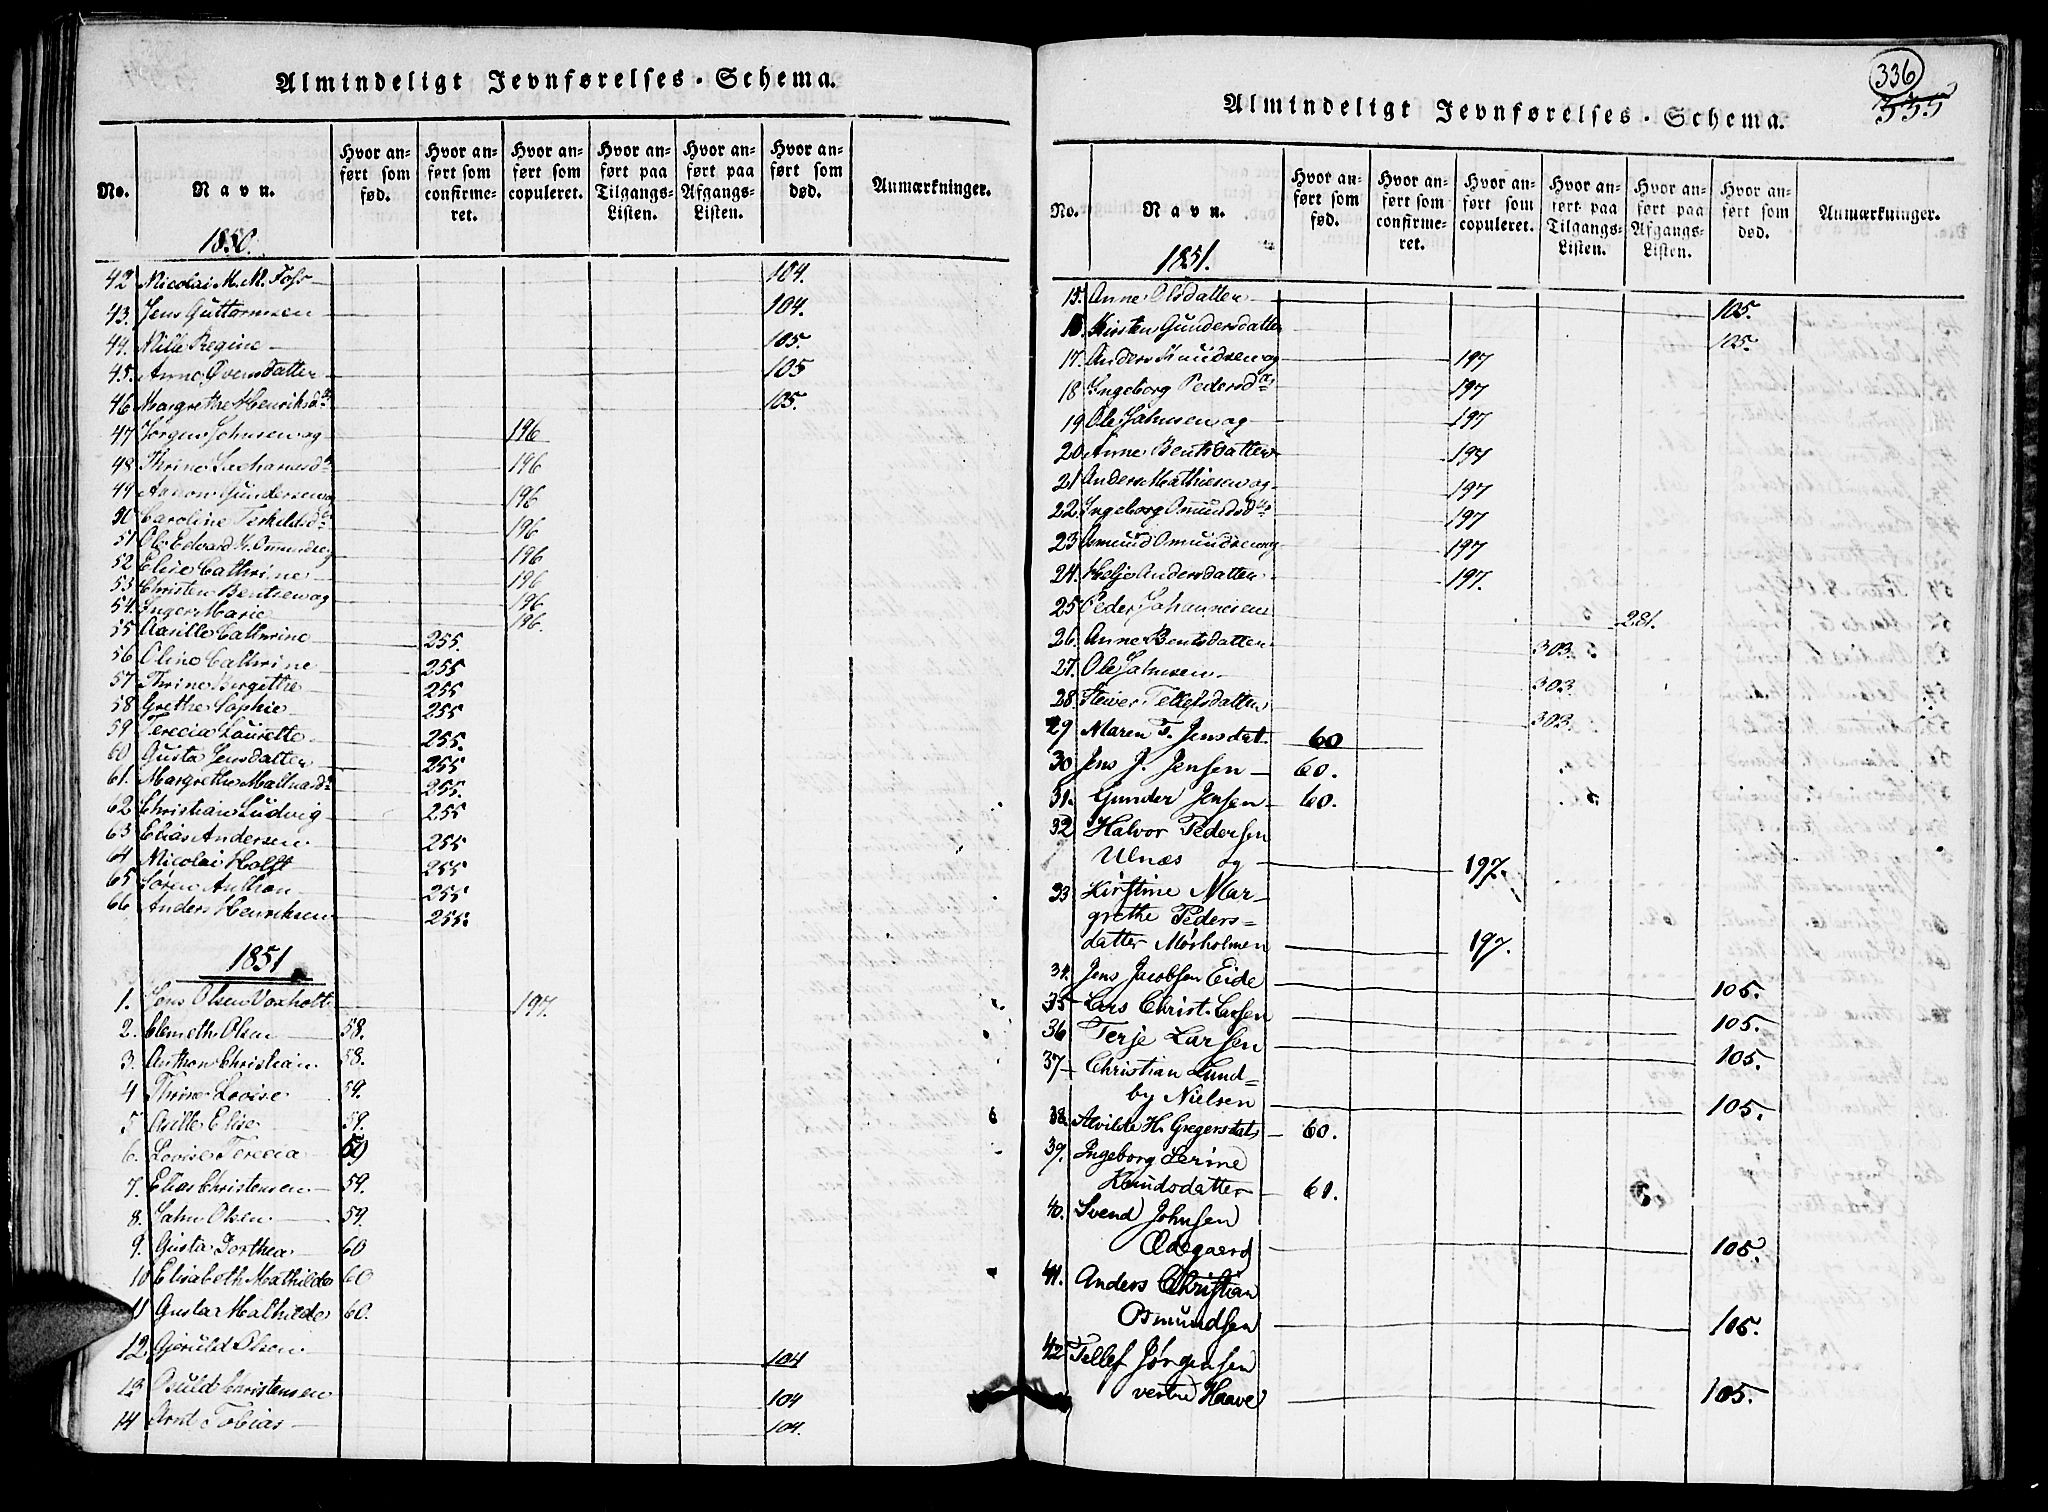 Almindeligt Jevnførelses-Schema.
No.
Navn.
Hvor anført som fød.
Hvor anført som confirmeret.
Hvor anført som copuleret.
Hvor anført paa Tilgangs-Listen.
Hvor anført paa Afgangs-Listen.
Hvor anført som død.
Anmærkninger.
1850.
42 Nicolai M. M. Foss 104.
43. Jens Guttormsen 104.
44. Mille Regine 105.
45. Anne Øvensdatter 105
46 Margrethe Henriksd. 105.
47 Jørgen Johnsen og 196
48 Thrine Zachariasd. 196
49 Aanon Gundersen og 196
50 Caroline Terkildsd. 196
51 Ole Edvard Omundsen 196
52 Elise Cathrine 196
53 Christen Bentsen og 196
54. Inger Marie 196.
55 Aasille Cathrine 255.
56 Oline Cathrine 255
57 Thrine Birgethe 255
58 Grethe Sophie 255
59 Terecia Laurette 255.
60 Gusta Jensdatter 255
61. Margrethe 255.
62 Christian Ludvig 255
63 Elias Andersen 255
64 Nicolai Holst 255
65 Søren Anthon 255
66 Anders Henriksen 255.
1851
1. Jens Olsen Voxholt 197.
2. Clemeth Olsen 58.
3. Anthon Christian 58.
4 Thrine Lovise 59.
5 Aselle Elise 59.
6. Lovise Terecia 59
7. Elias Christensen 59.
8. Jahn Olsen 59.
9. Gusta Dorthea 60
10 Elisabeth Mathilde 60
11 Gusta Mathilde 60.
12 Gjeruld Olsen 104
13 Osuld Christensen 104
14 Arnt Tobias 104.
336
335
Almindeligt Jevnførelses-Schema.
No.
Navn.
Hvor anført som fød.
Hvor anført som confirmeret.
Hvor anført som copuleret.
Hvor anført paa Tilgangs-Listen.
Hvor anført paa Afgangs-Listen.
Hvor anført som død.
Anmærkninger.
1851.
15. Anne Olsdatter 105.
16. Kirsten Gundersdatter 105.
17. Anders Knudsen og 197
18 Ingeborg Pedersd. 197
19 Ole Jahnsen og 197
20 Anne Bentsdatter 197
21 Anders Mathiesen og 197
22. Ingeborg Omundsd. 197
23 Omund Omundsen og 197
24. Helje Andersdatter 197.
25 Peder Johannesen 281.
26. Anne Bentsdatter 303.
27. Ole Jahnsen 303
28. Tellefsdatter 303.
29 Maren T. Jensdat. 60
30 Jens J. Jensen 60.
31. Gunder Jensen 60.
32 Halvor Pedersen
Ulnæs og 197.
33 Kirstine Mar-
grethe Peders=
datter Mørholmen 197.
34. Jens Jacobsen Eide 105.
35 Lars Christ. Larsen 105.
36 Terje Larsen 105.
37 Christian Lund=
by Nielsen 105.
38. Alvilde H. Gregersdat. 60.
39. Ingeborg Serine
Knudsdatter 61.
40. Svend Johnsen
Ødegaard 105.
41. Anders Christian
Osmundsen 105.
42 Tellef Jørgensen
vestre Haave 105.